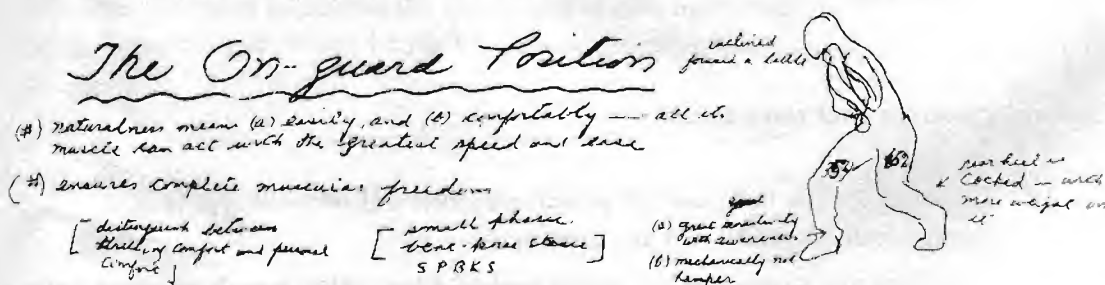 The On-guard Position
inclined
forward a little
(#) naturalness means (a) easily, and (b) comfortably — all its
muscle can act with the greatest speed and ease
(#) ensures complete muscular freedom
[distinguish between
thrilling comfort and personal
comfort]
[small phasic
bent-knee stance]
S P B K S
good
(a) great sensitivity
with awareness
(b) mechanically not
hamper
rear heel is
cocked — with
more weight on
it